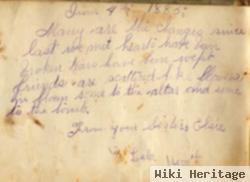 June 4th 1885.
Many are the changes since
last we met hearts have been
broken tears have been wept
friends are scattered like flowers
in some to the altar and some
to the tomb.
From your
Wiki Here.com